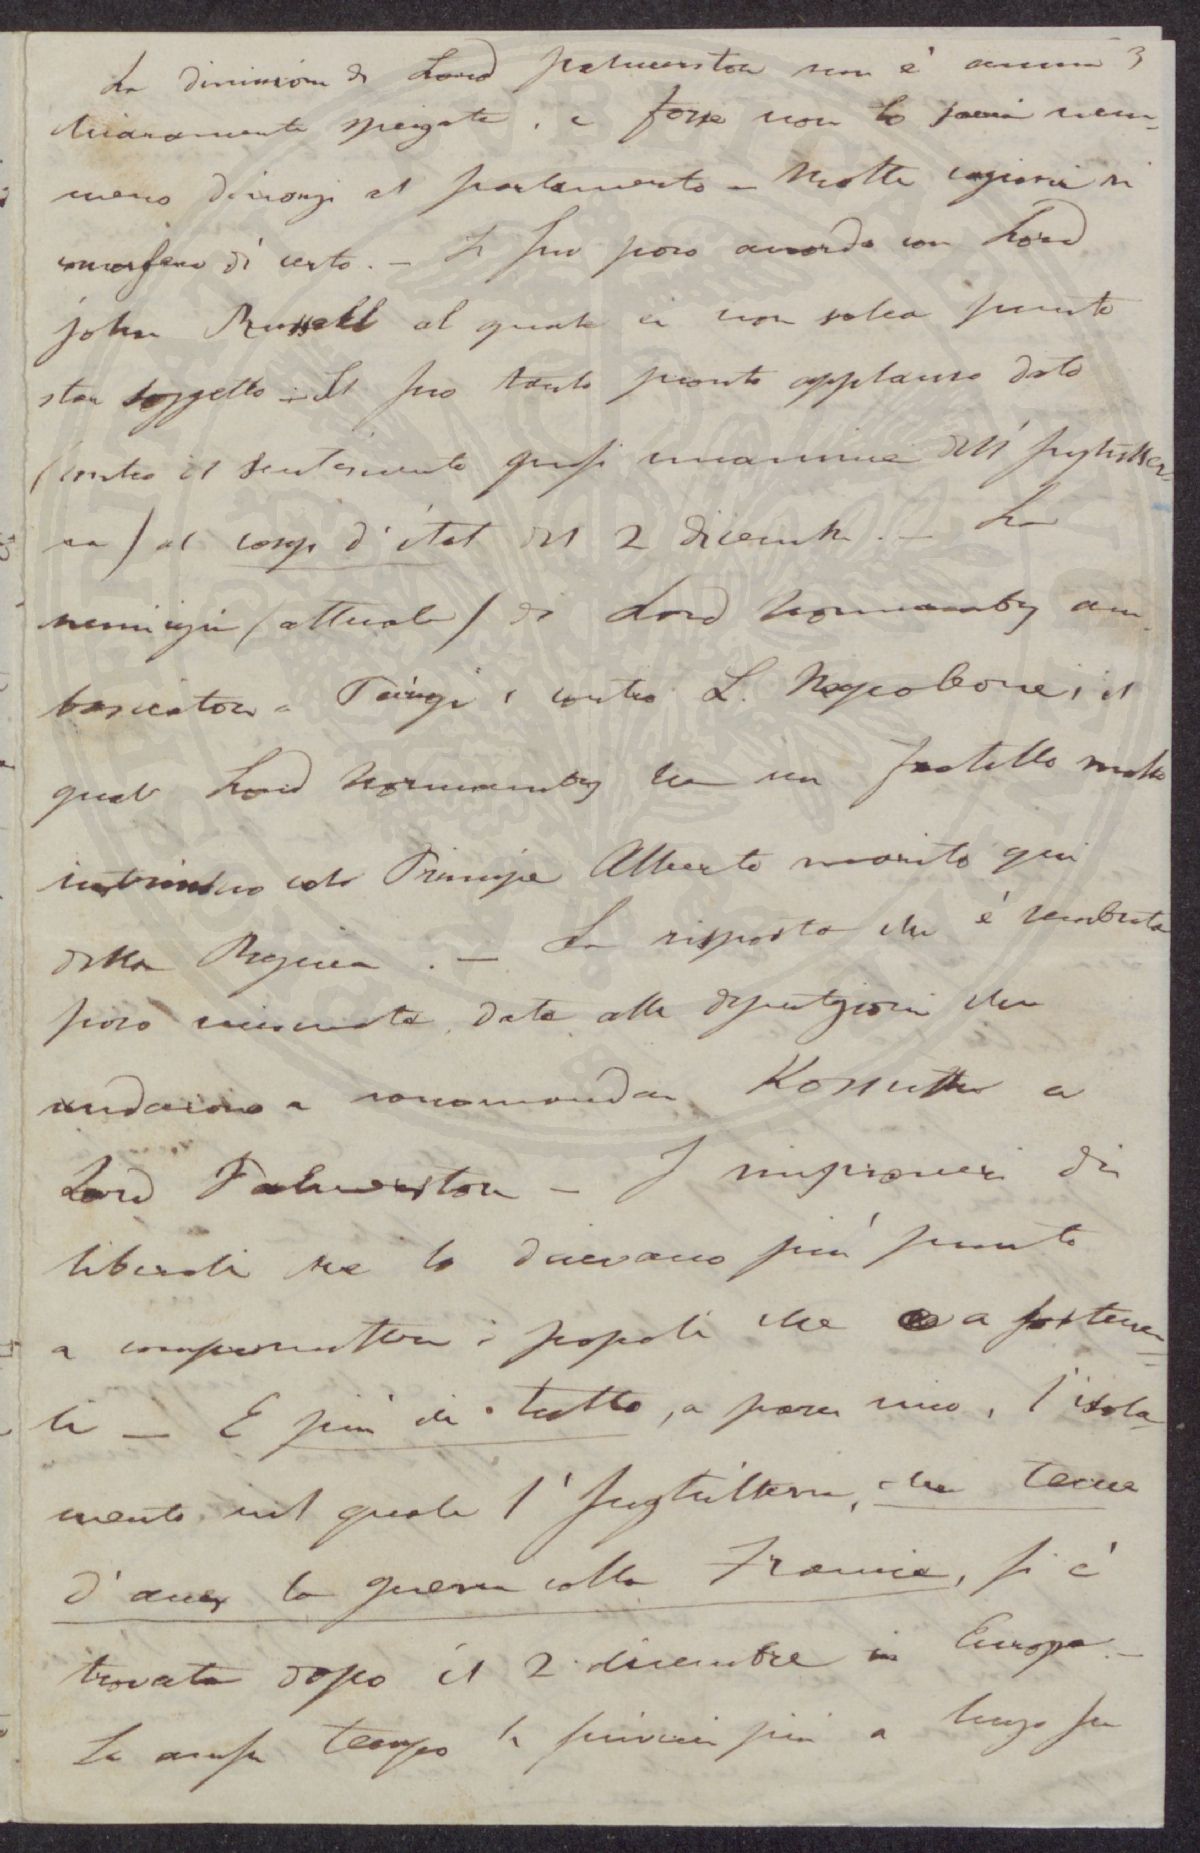 La dimission di Lord Palmerston non è ancora 3
chiaramente spiegata, e forse non lo sarà nem-
meno dinanzi al parlamento – Molte cagioni vi
concorsero di certo. – Il suo poco accordo con Lord
John Russell al quale ei non volea punto
star soggetto – Il suo tanto pronto applauso dato
(contro il sentimento quasi unanime dell'Inghilter-
ra) al coup d'état del 2 dicembre. – La
nemicizia (attuale) di Lord Normamby am-
basciatore a Parigi, contro L. Napoleone, il
quale Lord Normamby ha un fratello molto
intrinseco col Principe Alberto marito qui
della Regina. – La risposta che è sembrata
poco misurata, data alle deputazioni che
andarono a raccomandar Kossuth a
Lord Palmerston – I rimproveri di
liberali che lo dicevano più pronto
a compromettere i popoli che a sostener-
li – E più di tutto, a parer mio, l'isola-
mento nel quale l'Inghilterra, che teme
d'aver la guerra colla Francia, si è
trovata dopo il 2 dicembre in Europa. –
tempo più a lungo